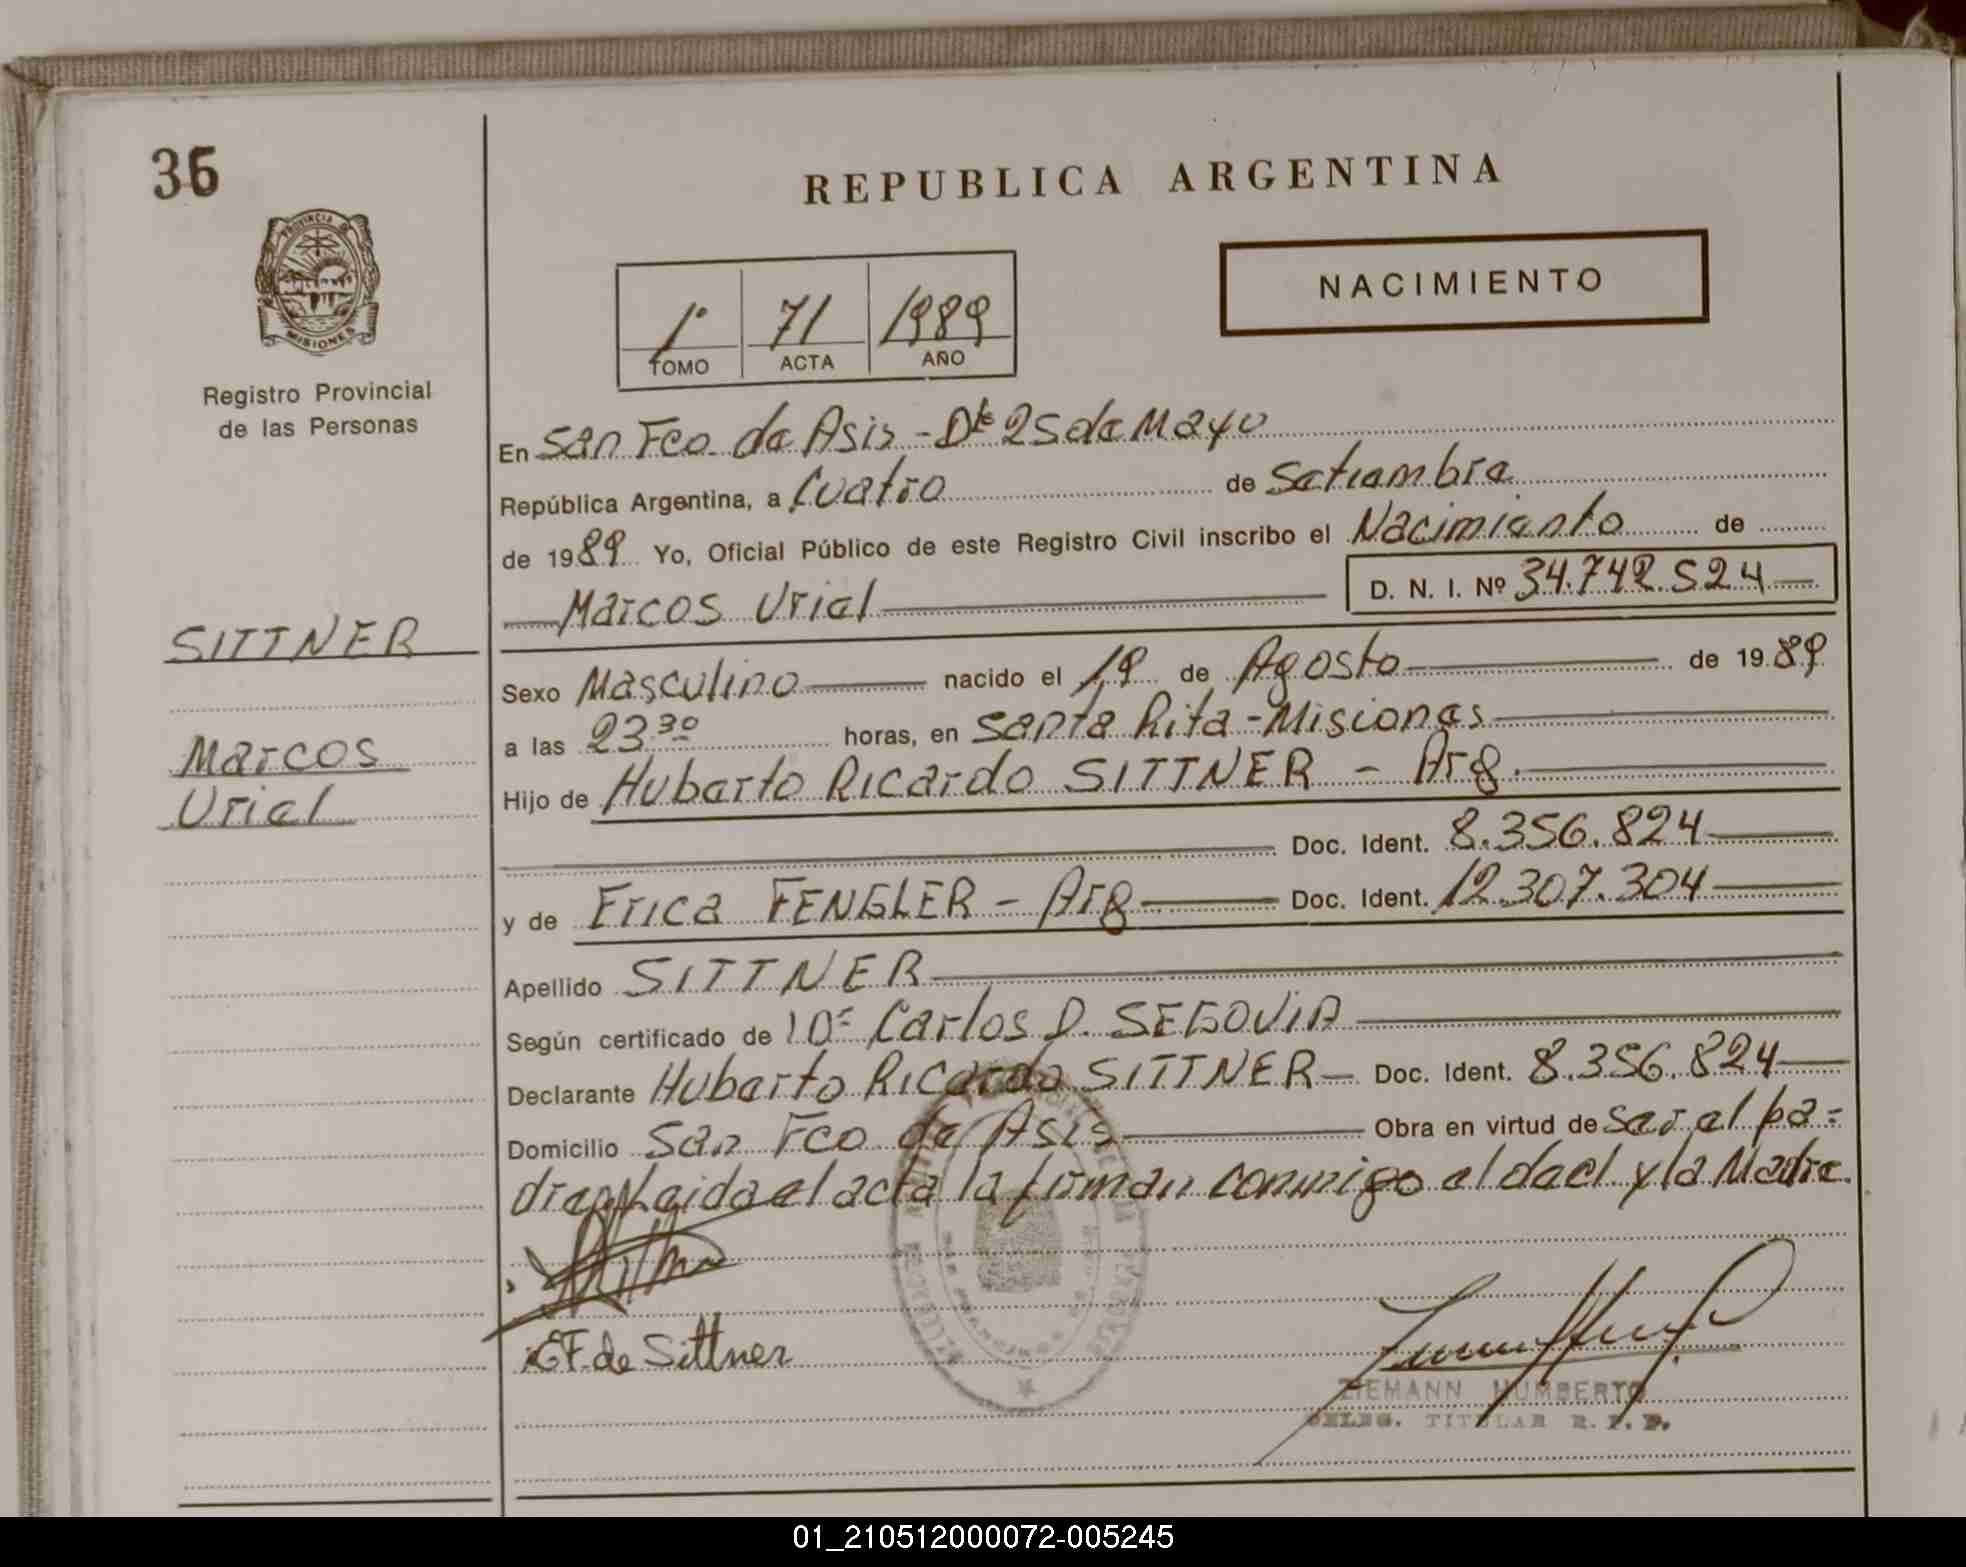 36
REPUBLICA ARGENTINA
PROVINCIA DE
MISIONES
NACIMIENTO
1º 71 1989
TOMO ACTA AÑO
Registro Provincial
de las Personas
En San Fco. de Asis - Dto 25 de Mayo
República Argentina, a Cuatro de Setiembre
de 1989 Yo, Oficial Público de este Registro Civil inscribo el Nacimiento de
Marcos Uriel D. N. I. Nº 34.742.524
SITTNER
Sexo Masculino nacido el 19 de Agosto de 1989
Marcos
Uriel
a las 23 30 horas, en Santa Rita - Misiones
Hijo de Huberto Ricardo SITTNER - Arg.
Doc. Ident. 8.356.824
y de Erica FENGLER - Arg Doc. Ident. 12.307.304
Apellido SITTNER
Según certificado de Carlos D. SEGOVIA
Declarante Huberto Ricardo SITTNER Doc. Ident. 8.356.824
Domicilio San Fco de Asis Obra en virtud de ser el pa=
dre leida el acta la firman conmigo el decl y la Madre.
EF. de Sittner
ZIEMANN HUMBERTO
DELEG. TITULAR R. P. P.
01_210512000072-005245